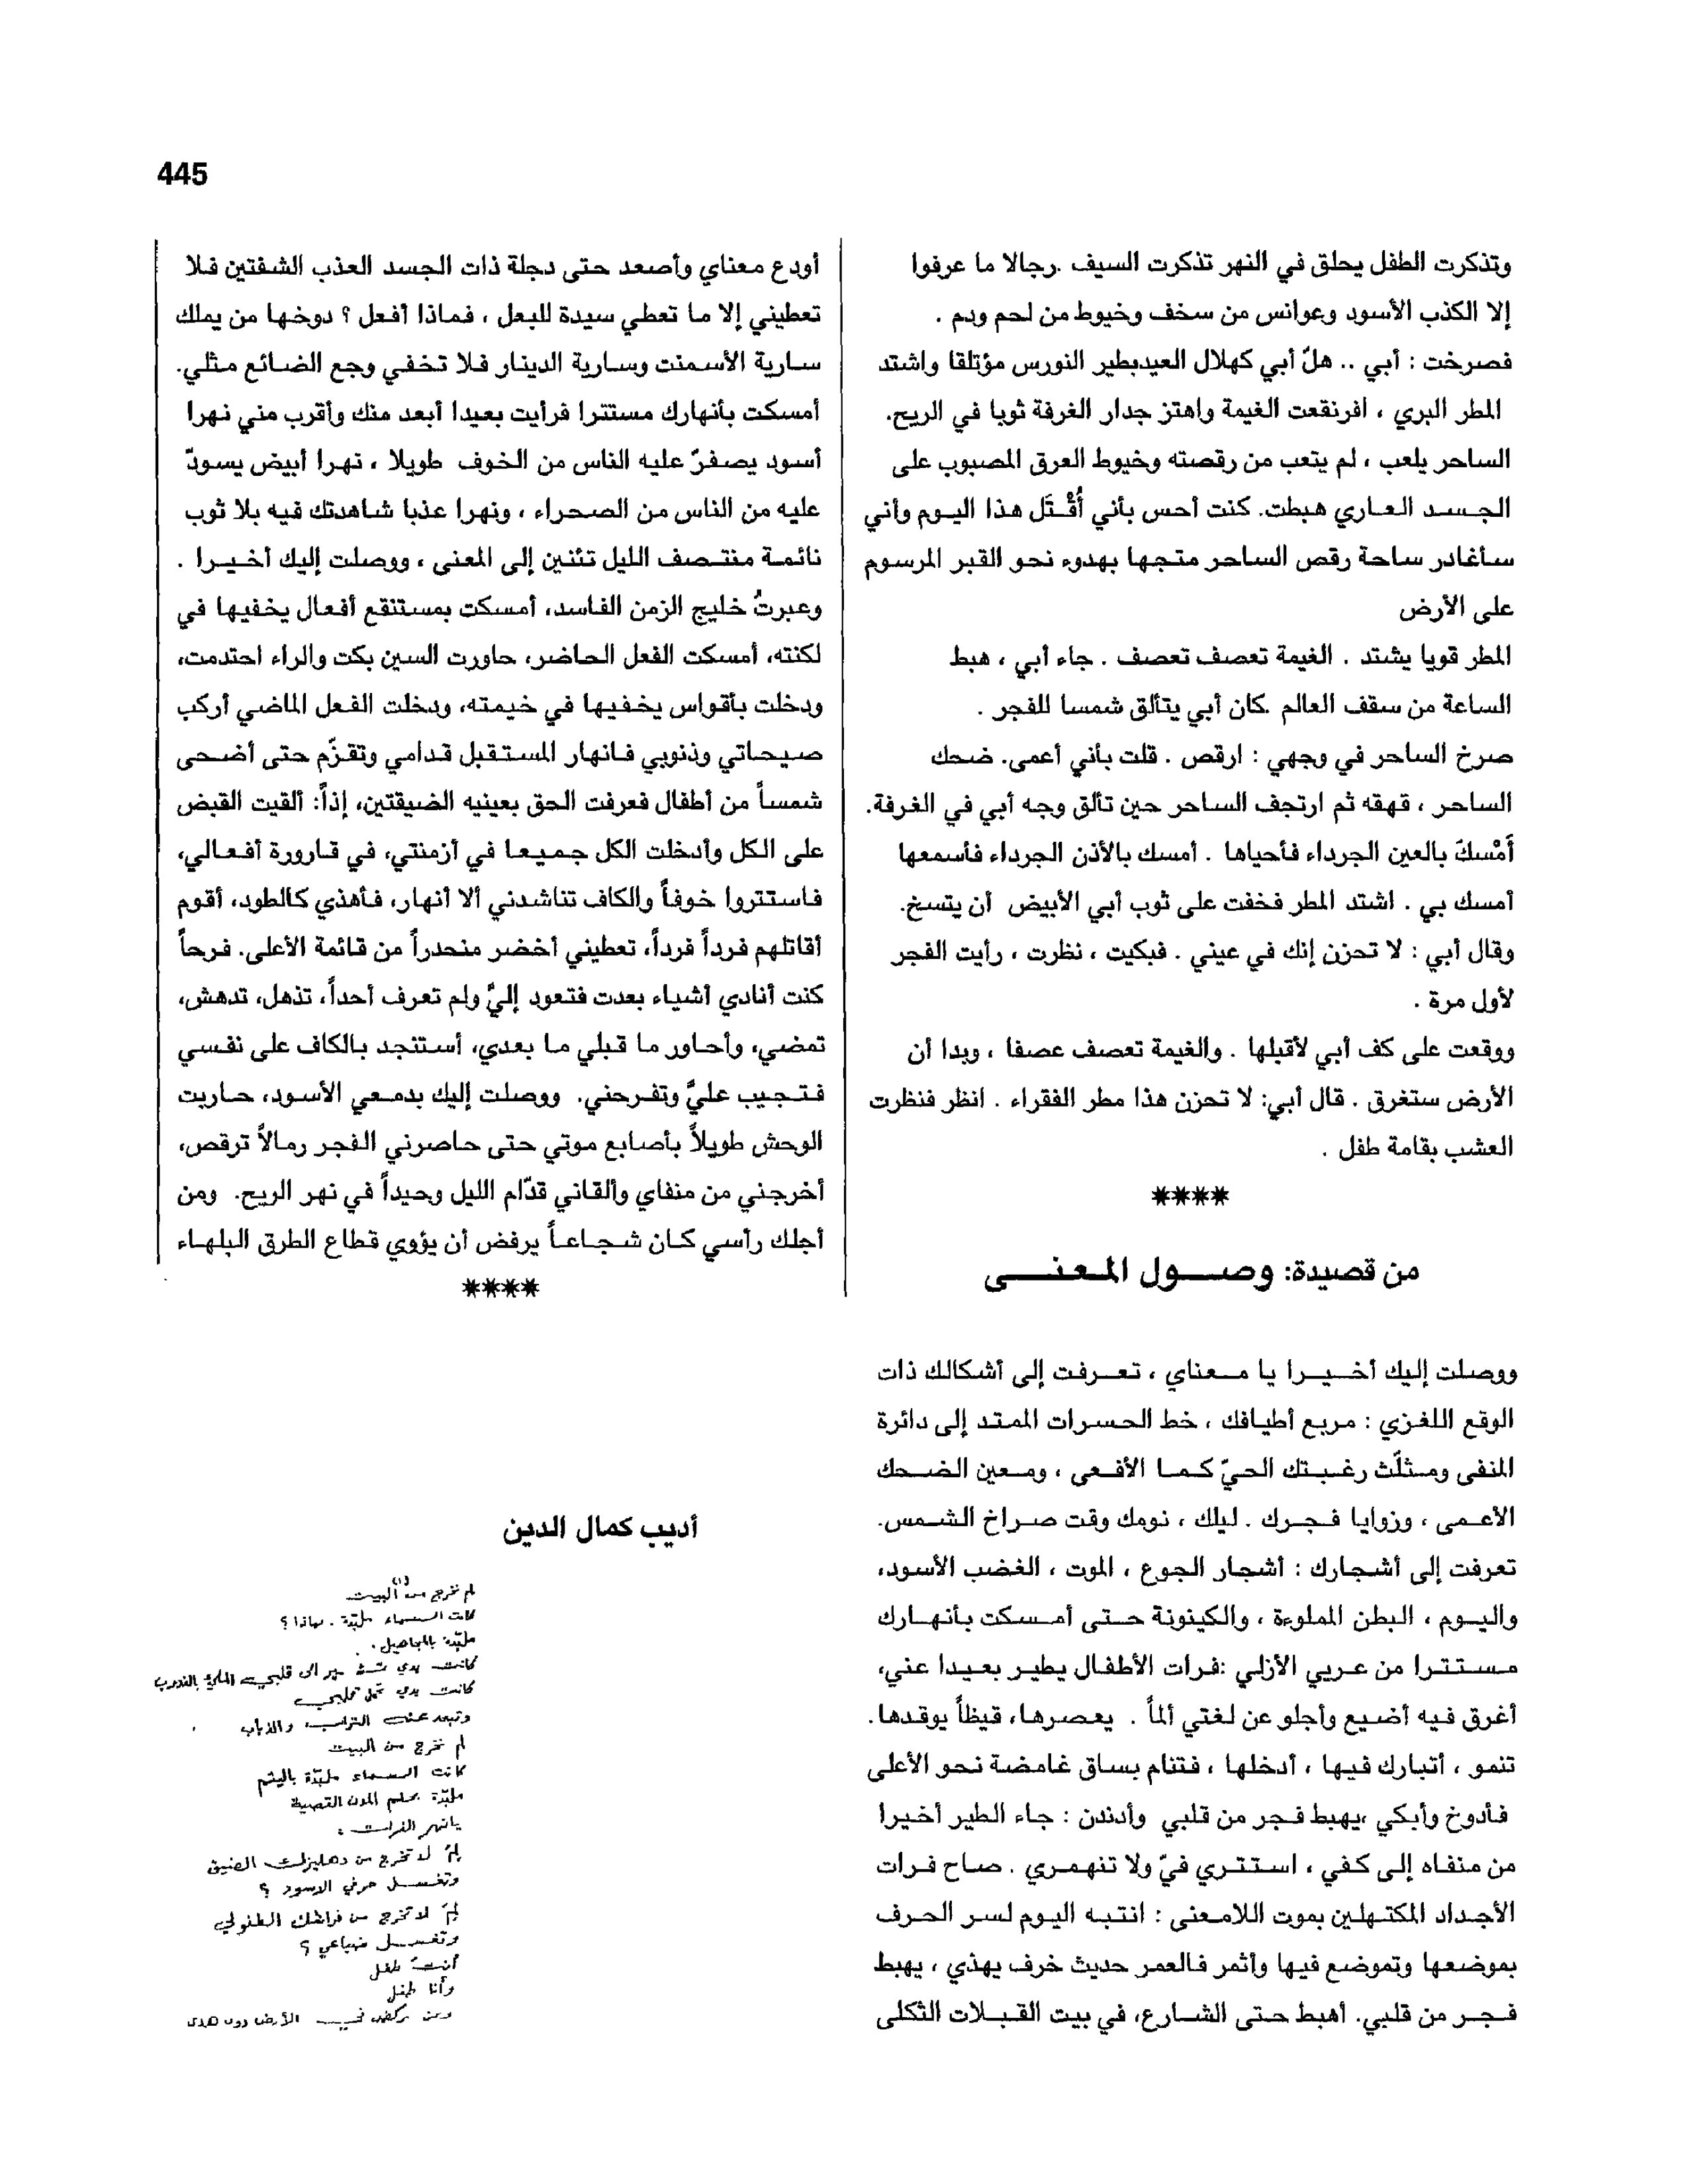 445
وتذكرت الطفل يحلق في النهر تذكرت السيف .رجالا ما عرفوا
إلا الكذب الأسود وعوانس من سخف وخيوط من لحم ودم .
فصرخت : أبي .. هلّ أبي كهلال العيدبطير النورس مؤتلقا واشتد
المطر البري ، افرنقعت الغيمة واهتز جدار الغرفة ثوبا في الريح.
الساحر يلعب ، لم يتعب من رقصته وخيوط العرق المصبوب على
الجسد العاري هبطت. كنت أحس بأني أُقْتَل هذا اليوم وأني
سأغادر ساحة رقص الساحر متجها بهدوء نحو القبر المرسوم
على الأرض
المطر قويا يشتد . الغيمة تعصف تعصف . جاء أبي ، هبط
الساعة من سقف العالم .كان أبي يتألق شمسا للفجر .
صرخ الساحر في وجهي : ارقص . قلت بأني أعمى. ضحك
الساحر ، قهقه ثم ارتجف الساحر حين تألق وجه أبي في الغرفة.
أَمْسكَ بالعين الجرداء فأحياها . أمسك بالأذن الجرداء فأسمعها
أمسك بي . اشتد المطر فخفت على ثوب أبي الأبيض أن يتسخ.
وقال أبي : لا تحزن إنك في عيني . فبكيت ، نظرت ، رأيت الفجر
لأول مرة .
ووقعت على كف أبي لأقبلها . والغيمة تعصف عصفا ، وبدا أن
الأرض ستغرق . قال أبي: لا تحزن هذا مطر الفقراء . انظر فنظرت
العشب بقامة طفل .
****
من قصيدة: وصول المعنى
ووصلت إليك أخيرا يا معناي ، تعرفت إلى أشكالك ذات
الوقع اللغزي : مربع أطيافك ، خط الحسرات الممتد إلى دائرة
المنفى ومثلّث رغبتك الحيّ كما الأفعى ، ومعين الضحك
الأعمى ، وزوايا فجرك . ليلك ، نومك وقت صراخ الشمس.
تعرفت إلى أشجارك : أشجار الجوع ، الموت ، الغضب الأسود،
واليوم ، البطن المملوءة ، والكينونة حتى أمسكت بأنهارك
مستترا من عريي الأزلي :فرات الأطفال يطير بعيدا عني،
أغرق فيه أضيع وأجلو عن لغتي ألماً . يعصرها، قيظاً يوقدها.
تنمو ، أتبارك فيها ، أدخلها ، فتنام بساق غامضة نحو الأعلى
فأدوخ وأبكي ،يهبط فجر من قلبي وأدندن : جاء الطير أخيرا
من منفاه إلى كفي ، استتري فيّ ولا تنهمري . صاح فرات
الأجداد المكتهلين بموت اللامعنى : انتبه اليوم لسر الحرف
بموضعها وتموضع فيها وأثمر فالعمر حديث خرف يهذي ، يهبط
فجر من قلبي. أهبط حتى الشارع، في بيت القبلات الثكلى
أودع معناي وأصعد حتى دجلة ذات الجسد العذب الشفتين فلا
تعطيني إلا ما تعطي سيدة للبعل ، فماذا أفعل ؟ دوخها من يملك
سارية الأسمنت وسارية الدينار فلا تخفي وجع الضائع مثلي.
أمسكت بأنهارك مستترا فرأيت بعيدا أبعد منك وأقرب مني نهرا
أسود يصفرّ عليه الناس من الخوف طويلا ، نهرا أبيض يسودّ
عليه من الناس من الصحراء ، ونهرا عذبا شاهدتك فيه بلا ثوب
نائمة منتصف الليل تئنين إلى المعنى ، ووصلت إليك أخيرا .
وعبرتُ خليج الزمن الفاسد، أمسكت بمستنقع أفعال يخفيها في
لكنته، أمسكت الفعل الحاضر، حاورت السين بكت والراء احتدمت،
ودخلت بأقواس يخفيها في خيمته، ودخلت الفعل الماضي أركب
صيحاتي وذنوبي فانهار المستقبل قدامي وتقزّم حتى أضحى
شمساً من أطفال فعرفت الحق بعينيه الضيقتين، إذاً: ألقيت القبض
على الكل وأدخلت الكل جميعا في أزمنتي، في قارورة أفعالي،
فاستتروا خوفاً والكاف تناشدني ألا أنهار، فأهذي كالطود، أقوم
أقاتلهم فرداً فرداً، تعطيني أخضر منحدراً من قائمة الأعلى. فرحاً
كنت أنادي أشياء بعدت فتعود إليّ ولم تعرف أحداً، تذهل، تدهش،
تمضي، وأحاور ما قبلي ما بعدي، أستنجد بالكاف على نفسي
فتجيب عليّ وتفرحني. ووصلت إليك بدمعي الأسود، حاربت
الوحش طويلاً بأصابع موتي حتى حاصرني الفجر رمالاً ترقص،
أخرجني من منفاي وألقاني قدّام الليل وحيداً في نهر الريح. ومن
أجلك رأسي كان شجاعاً يرفض أن يؤوي قطاع الطرق البلهاء
****
أديب كمال الدين
(١)
لم تخرج من البيت
كانت السماء ملبّدة . بماذا ؟
ملبّدة بالمجاهيل .
كانت يدي تشير الى قلبي المليء بالندوب
كانت يدي تحمل قلبي
وتبعد عنه التراب والذباب
لم تخرج من البيت
كانت السماء ملبّدة باليتم
ملبّدة بحلم المدن القصية
يا نهر الفرات :
لِمَ لا تخرج من دهليزك الضيق
وتغسل حرفي الاسود ؟
لِمَ لا تخرج من فراشك الطفولي
وتغسل ضياعي ؟
أنت طفل
وأنا طفل
الأرض دون هدى